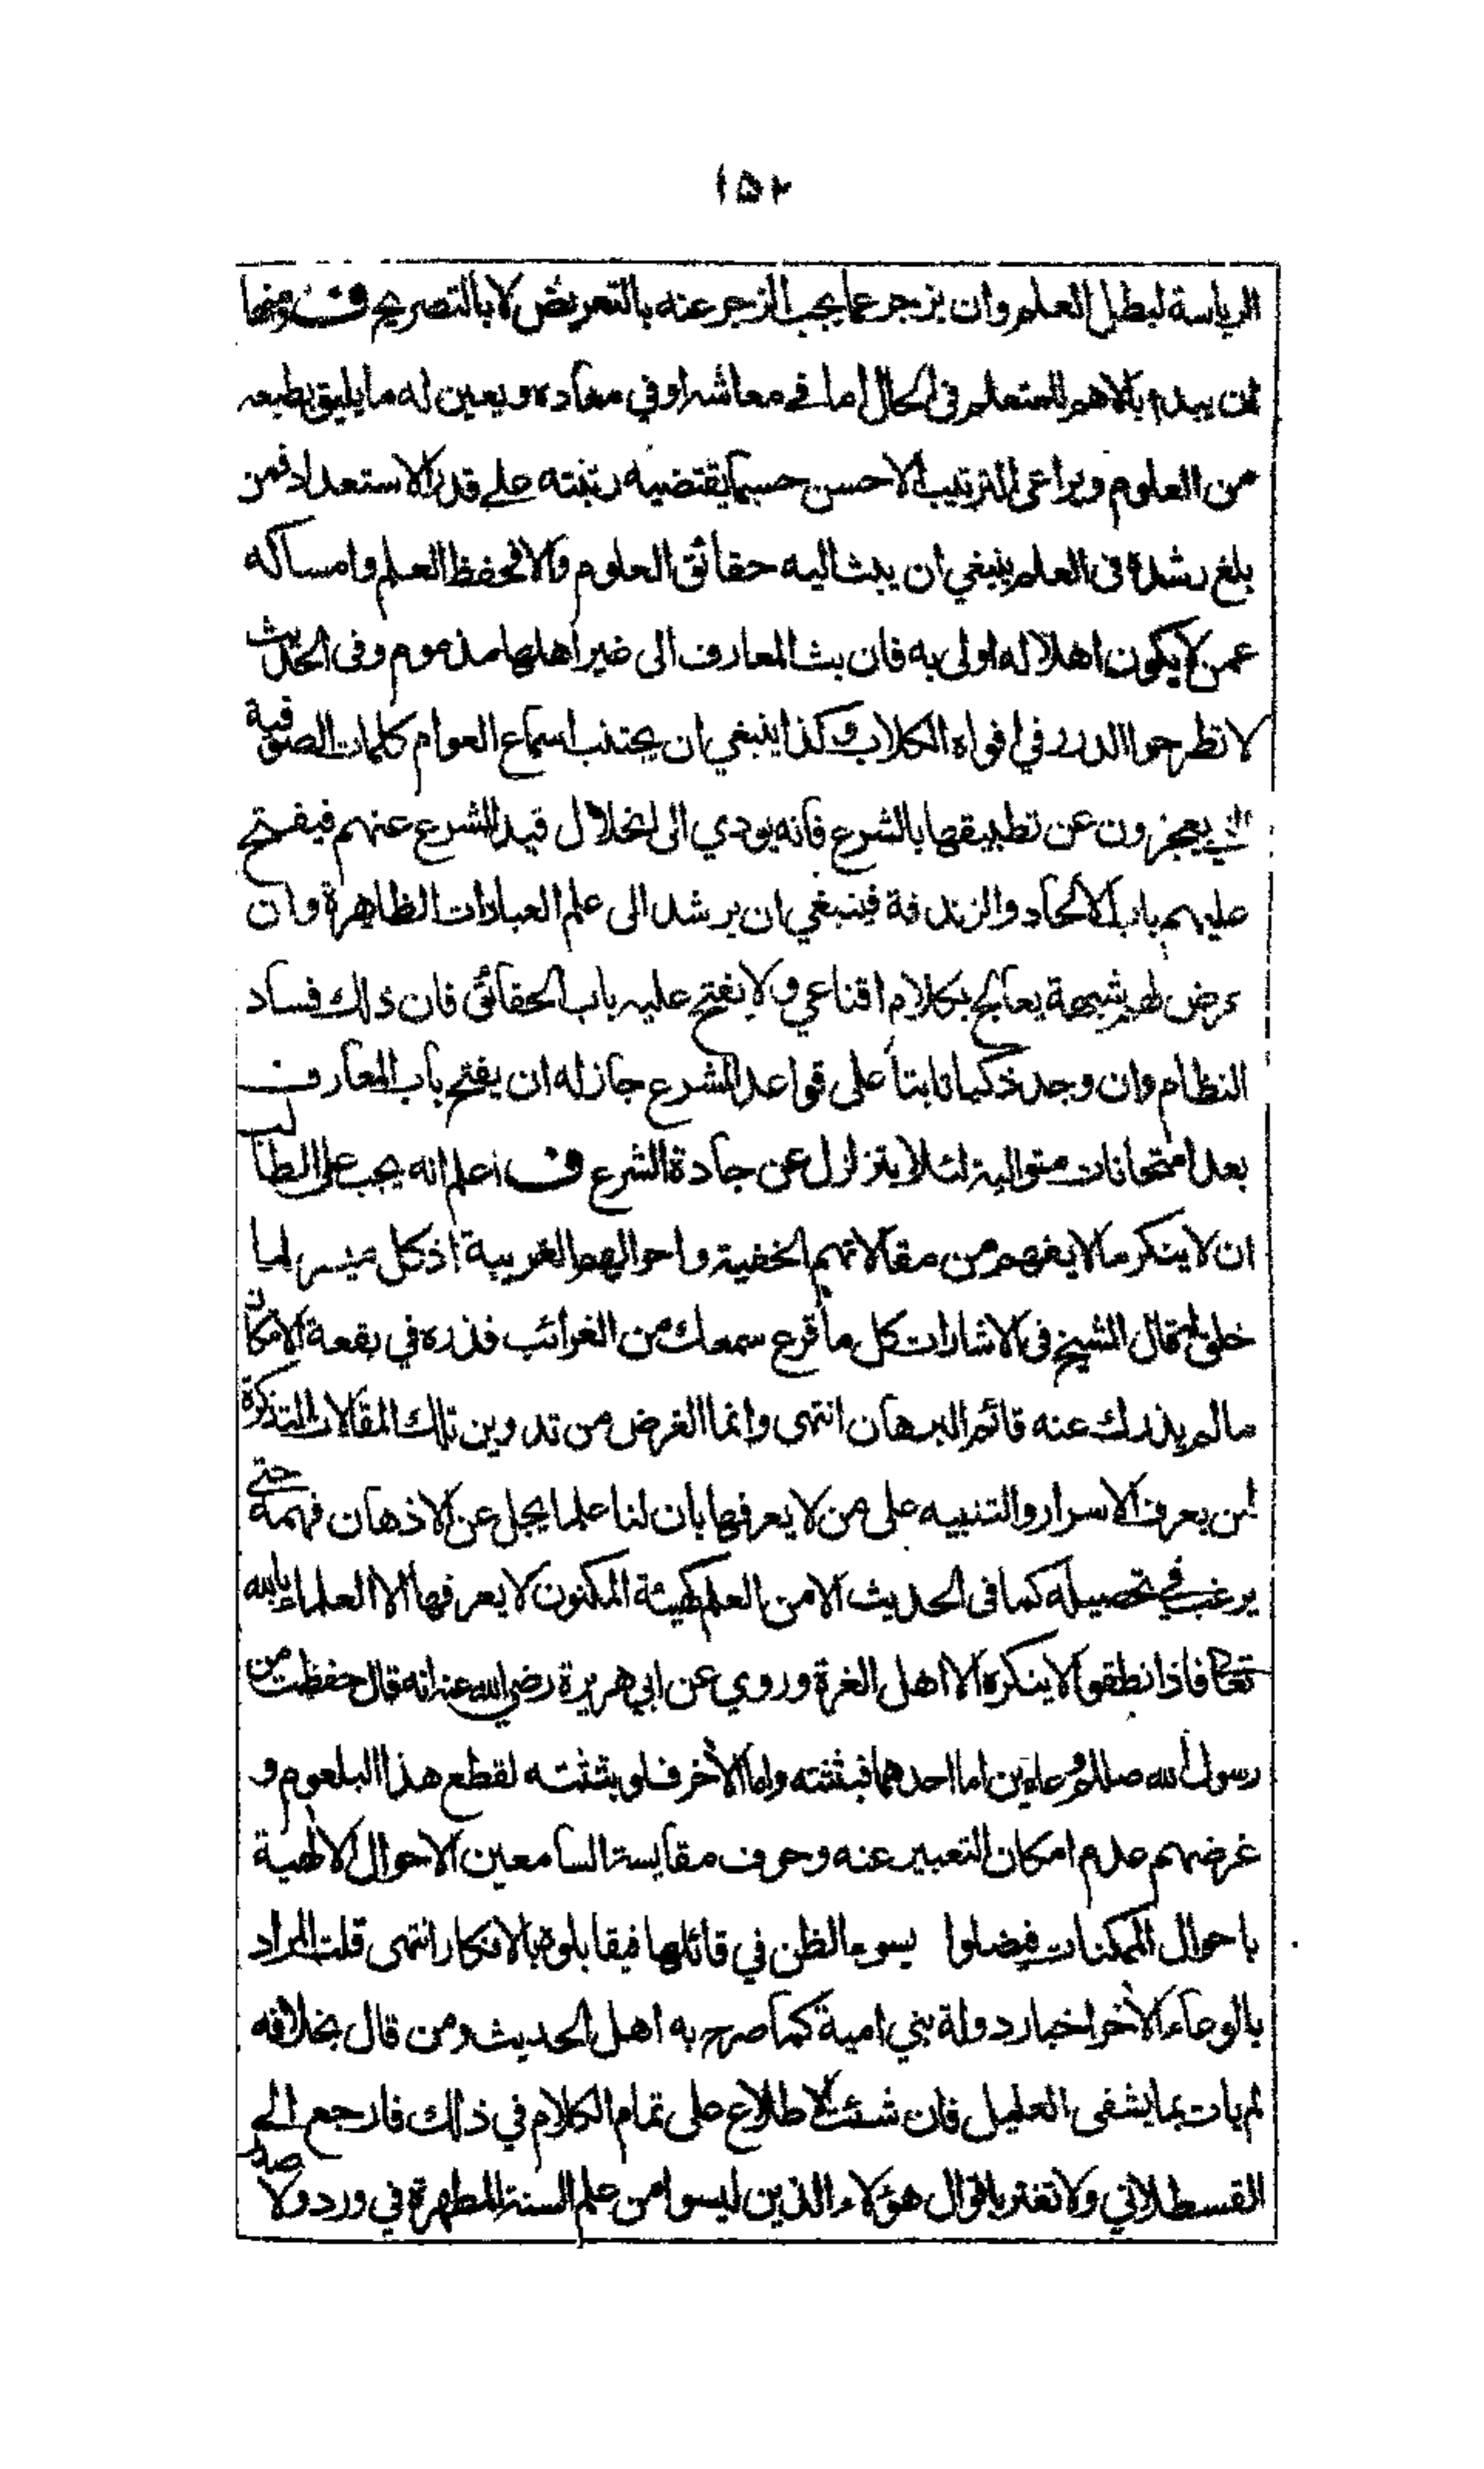 ١٥٢
الرياسة لبطل العلم وان يزجر عما يجب الزجر عنه بالتعريض لا بالتصريح ف ومنها
ان يبدء بالاهم للمتعلم في الحال اما في معاشه او في معاده ويعين له ما يليق بطبعه
من العلوم ويراعى الترتيب الاحسن حسبما يقتضيه رتبته على قدر الاستعداد فمن
بلغ رشده في العلم ينبغي ان يبث اليه حقائق العلوم والا فحفظ العلم وامساكه
عمن لا يكون اهلا له اولى به فان بث المعارف الى غير اهلها مذموم وفى الحديث
لا تطرحوا الدرر في افواه الكلاب وكذا ينبغي ان يجتنب اسماع العوام كلمات الصوفية
التي يعجزون عن تطبيقها بالشرع فانه يودي الى انحلال قيد الشرع عنهم فيفتح
عليهم باب الالحاد والزندقة فينبغي ان يرشد الى علم العبادات الظاهرة وان
عرض لهم شبهة يعالج بكلام اقناعي ولا يفتح عليه باب الحقائق فان ذلك فساد
النظام وان وجد ذكيا ثابتاً على قواعد الشرع جاز له ان يفتح باب المعارف
بعد امتحانات متوالية لئلا يتزلزل عن جادة الشرع ف اعلم انه يجب على الطالب
ان لا ينكر ما لا يفهم من مقالاتهم الخفية واحوالهم الغريبة اذ كل ميسر لما
خلق له قال الشيخ فى الاشارات كل ما قرع سمعك من الغرائب فذره في بقعة الامكان
ما لم يذدك عنه قائم البرهان انتهى وانما الغرض من تدوين تلك المقالات التذكرة
لمن يعرف الاسرار والتنبيه على من لا يعرفها بان لنا علما يجل عن الاذهان فهمه حتى
يرغب في تحصيله كما فى الحديث الا من العلم كهيئة المكنون لا يعرفها الا العلماء بالله
تعالى فاذا نطقوا لا ينكره الا اهل الغرة وروي عن ابي هريرة رضي الله عنه انه قال حفظت من
رسول الله صللم وعاءين اما احدهما فبثثته واما الآخر فلو بثثته لقطع هذا البلعوم و
غرضهم عدم امكان التعبير عنه وخوف مقايسة السامعين الاحوال الالهية
باحوال الممكنات فيضلوا بسوء الظن في قائلها فيقابلوه بالانكار انتهى قلت المراد
بالوعاء الآخر اخبار دولة بني امية كما صرح به اهل الحديث ومن قال بخلافه
لم يات بما يشفى العليل فان شئت الاطلاع على تمام الكلام في ذلك فارجع الى
القسطلاني ولا تغتر باقوال هؤلاء الذين ليسوا من علم السنة المطهرة في ورد ولا صدر